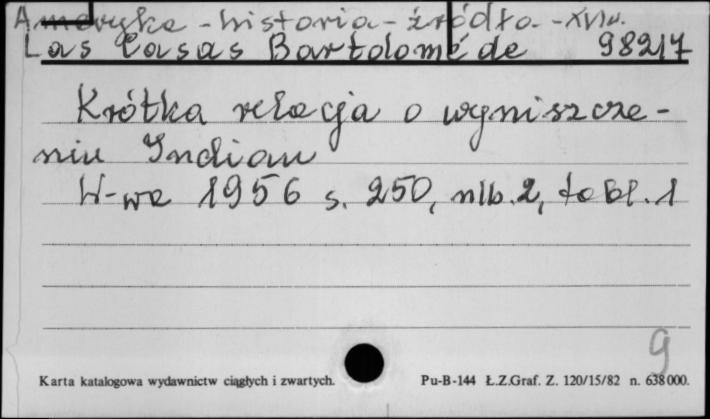 Ameryka - historia - źródła - XVI w.
Las Casas Bartolomé de 98217
Krótka relacja o wyniszcze-
niu Indian
W-wa 1956 s. 250, nlb. 2, tabl. 1
9
Karta katalogowa wydawnictw ciągłych i zwartych. Pu-B-144 Ł.Z.Graf. Z. 120/15/82 n. 638 000.